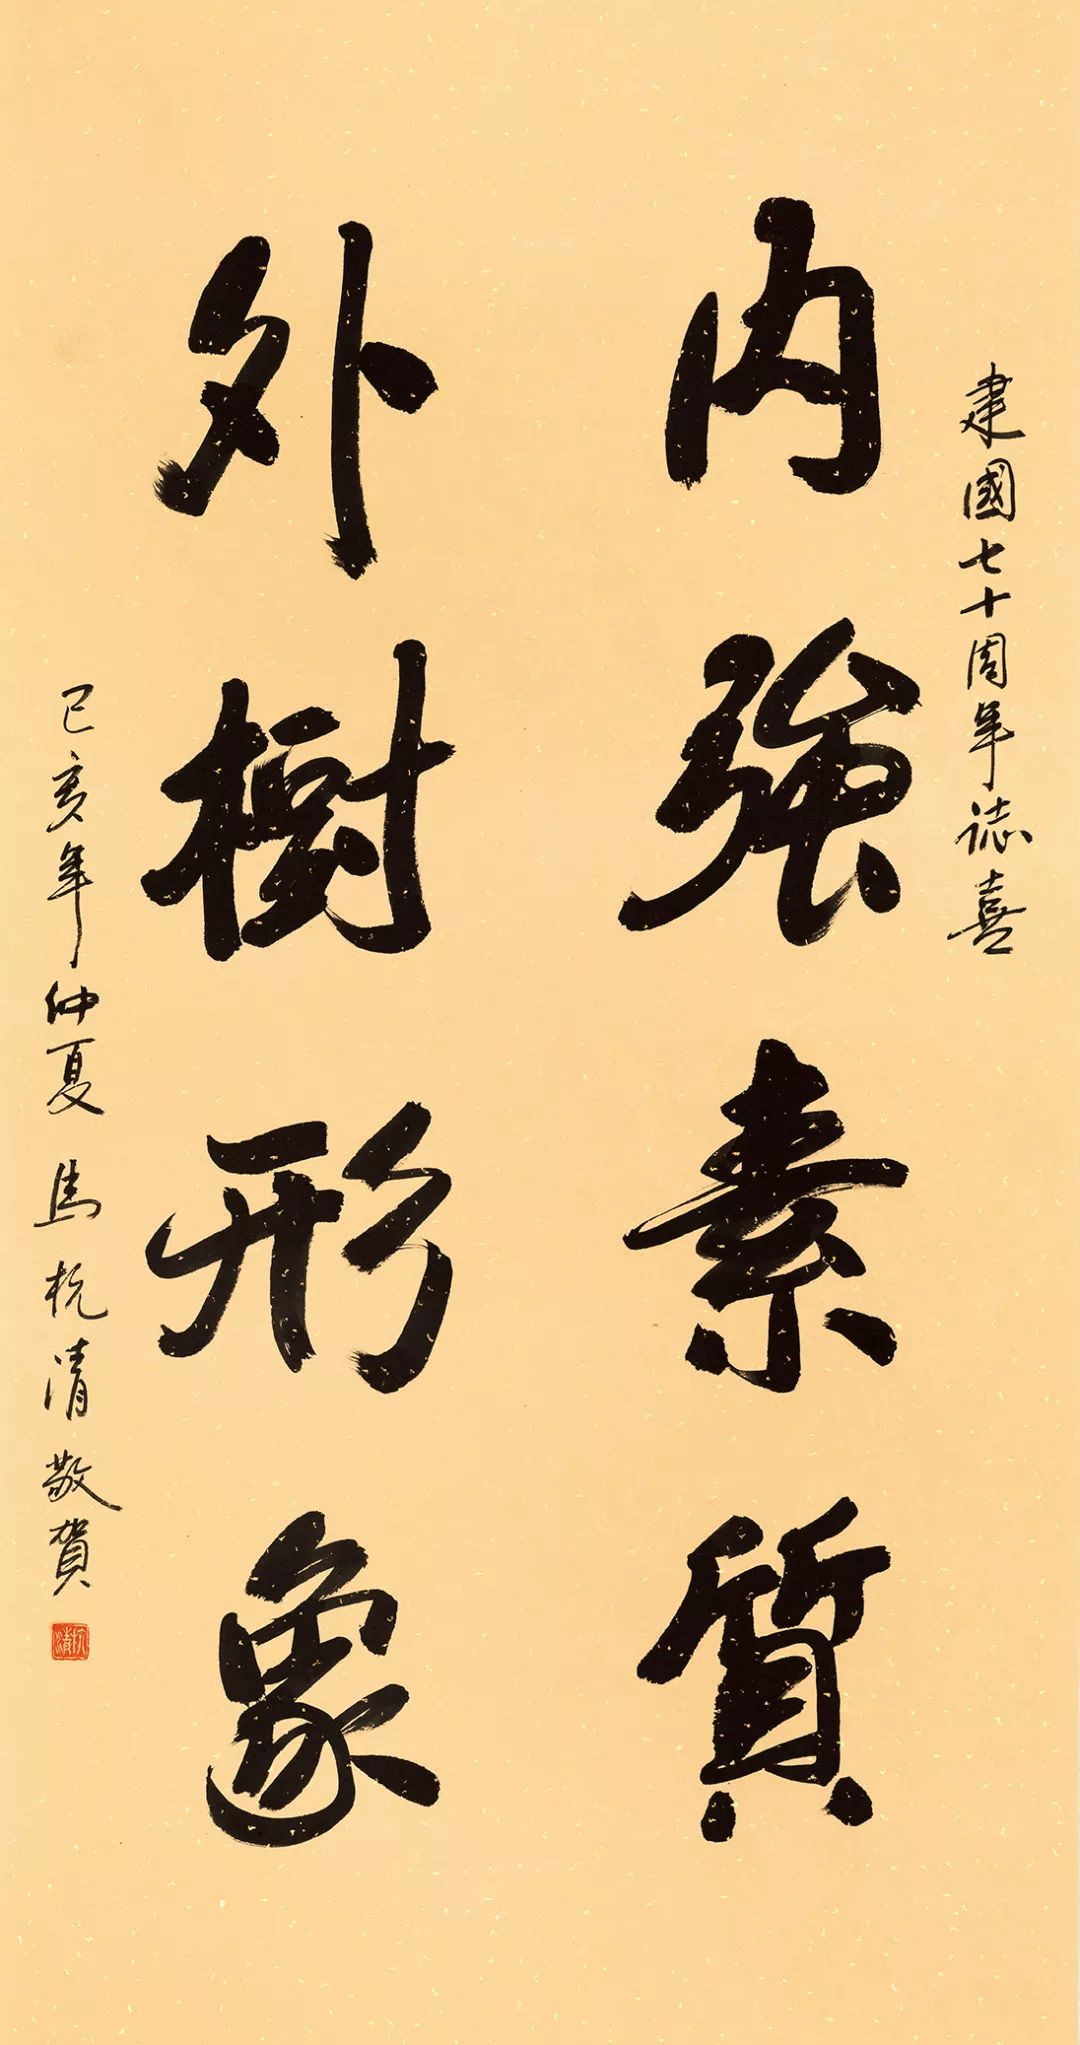 建國七十周年誌喜
内強素質
外樹形象
己亥年仲夏 馬杭清敬賀
杭清